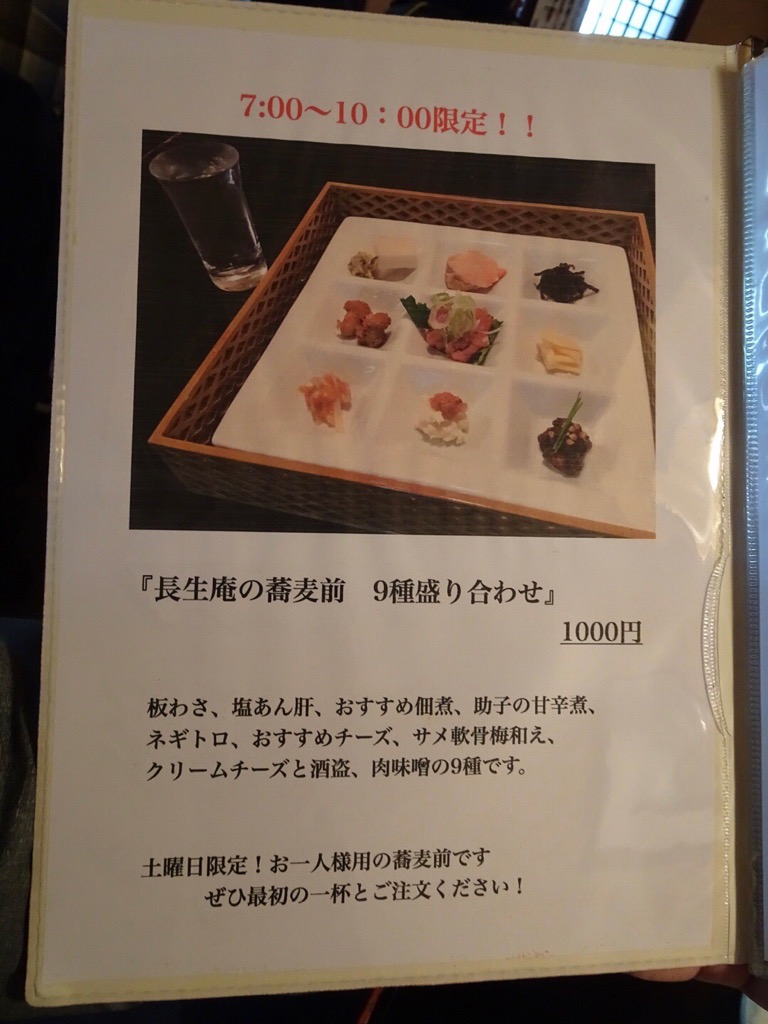 7:00〜10：00限定！！
『長生庵の蕎麦前　9種盛り合わせ』
1000円
板わさ、塩あん肝、おすすめ佃煮、助子の甘辛煮、
ネギトロ、おすすめチーズ、サメ軟骨梅和え、
クリームチーズと酒盗、肉味噌の9種です。
土曜日限定！お一人様用の蕎麦前です
ぜひ最初の一杯とご注文ください！